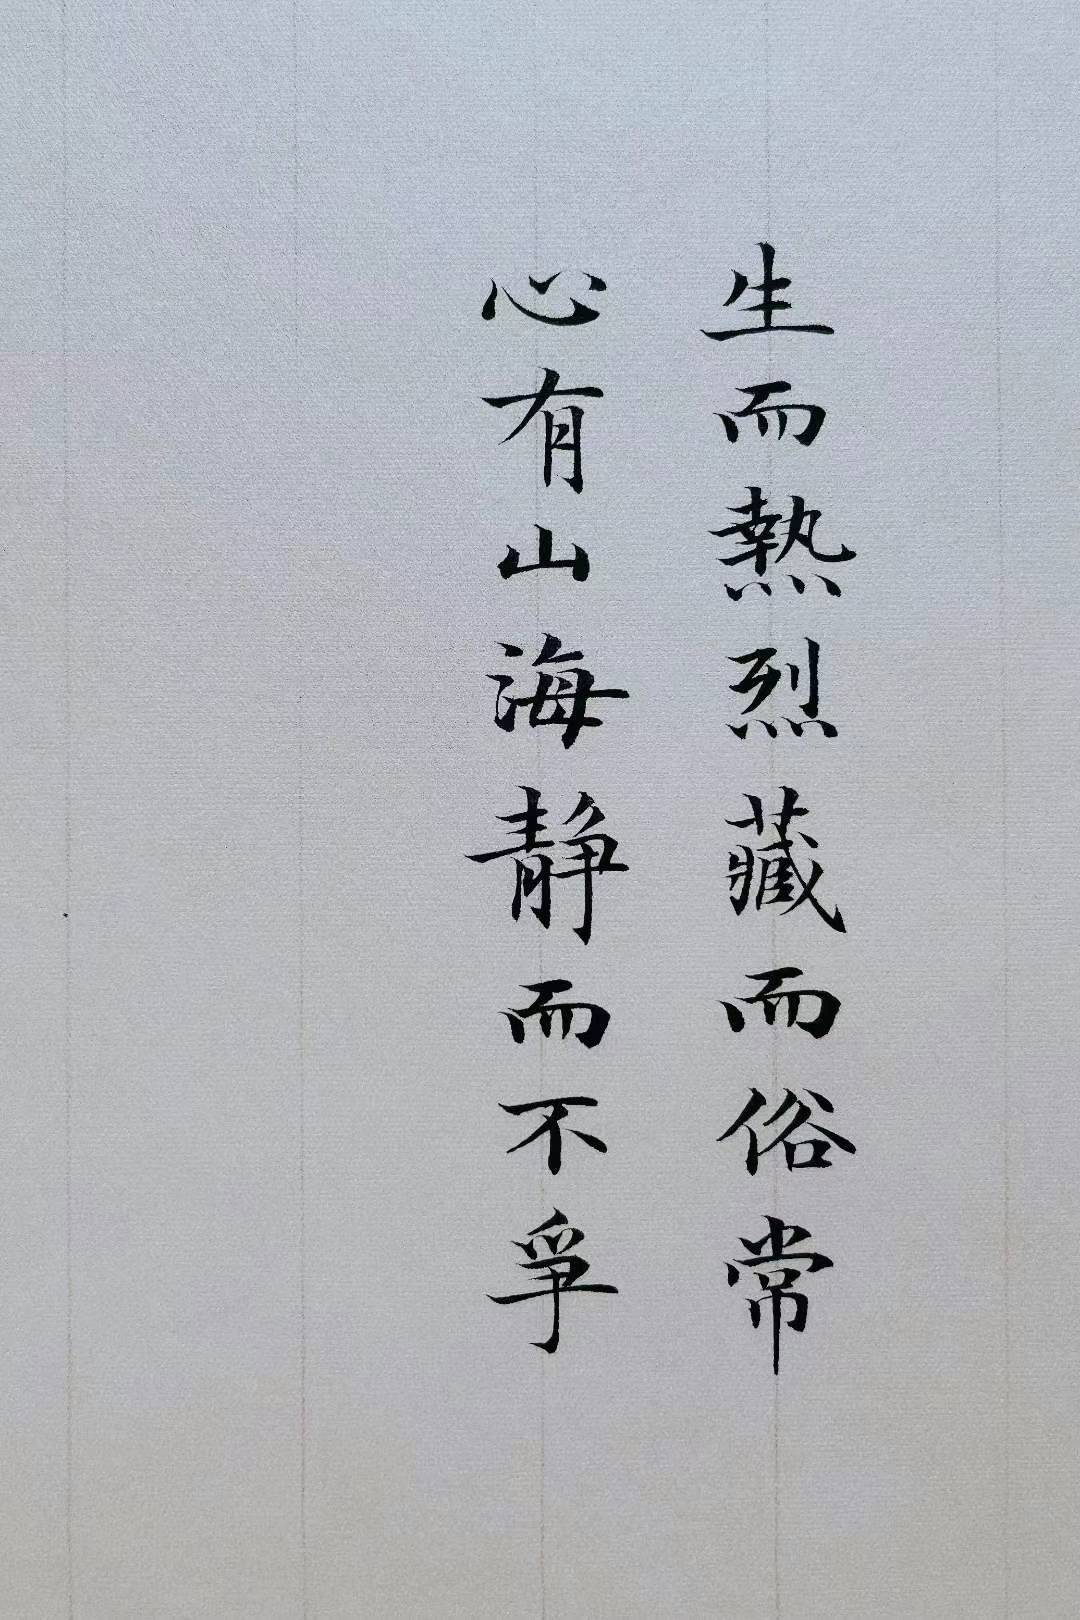 生而熱烈藏而俗常
心有山海静而不爭